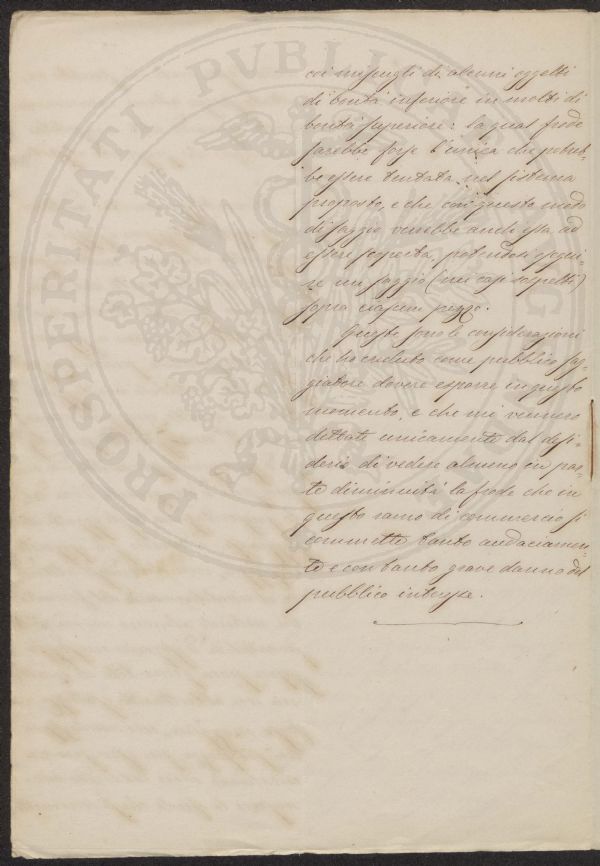 coi miscugli di alcuni oggetti
di bontà inferiore in molti di
bontà superiore: la qual frode
sarebbe forse l'unica che potreb-
be essere tentata nel sistema
proposto, e che con questo modo
di saggio verrebbe anch'essa ad
essere scoperta, potendosi esegui-
re un saggio (nei casi sospetti)
sopra ciascun pezzo.
Queste sono le considerazioni
che ho creduto come pubblico sag-
giatore dovere esporre in questo
momento, e che mi vennero
dettate unicamente dal desi-
derio di vedere almeno in par-
te diminuita la frode che in
questo ramo di commercio si
commette tanto audacemen-
te e con tanto grave danno del
pubblico interesse.
PROSPERITATI PVBLIC